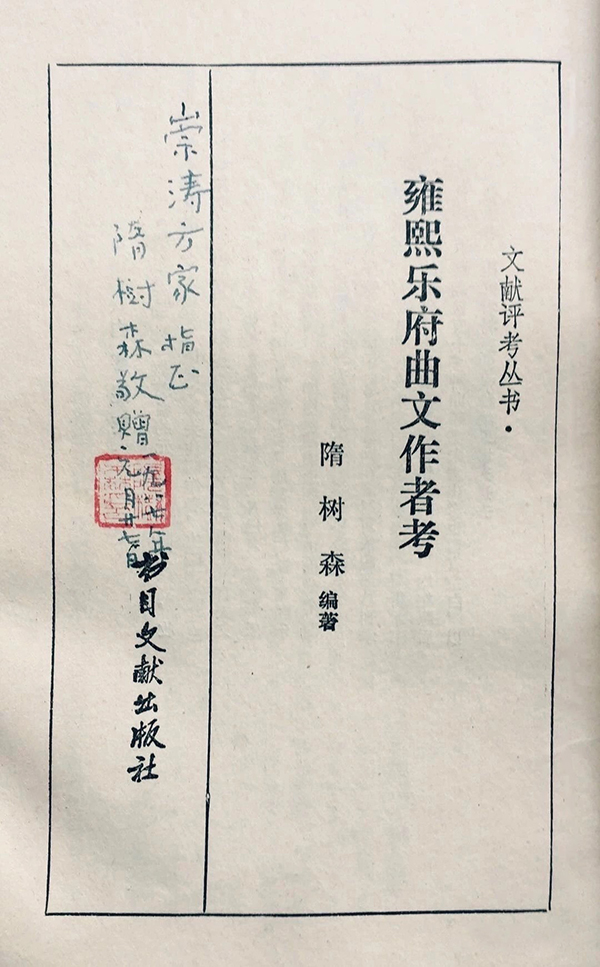 文献评考丛书·
雍熙乐府曲文作者考
隋树森编著
崇涛方家指正
隋樹森敬贈
一九八七年
元月廿七日
书目文献出版社